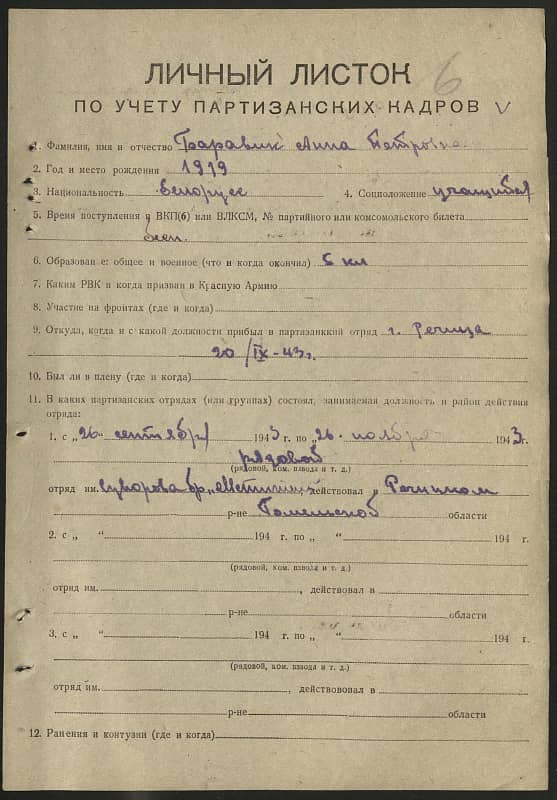 6
ЛИЧНЫЙ ЛИСТОК
ПО УЧЕТУ ПАРТИЗАНСКИХ КАДРОВ V
1. Фамилия, имя и отчество Таравик Анна Петровна
2. Год и место рождения 1919
3. Национальность белорусс 4. Соцположение учащийся
5. Время поступления в ВКП(б) или ВЛКСМ, № партийного или комсомольского билета
бесп.
6. Образование: общее и военное (что и когда окончил) 6 кл
7. Каким РВК и когда призван в Красную Армию
8. Участие на фронтах (где и когда)
9. Откуда, когда и с какой должности прибыл в партизанкий отряд г. Речица
20/IX-43г.
10. Был ли в плену (где и когда)
11. В каких партизанских отрядах (или группах) состоял, занимаемая должность и район действия
отряда:
1. с „26 сентября 1943 г. по „26 ноября 1943 г.
рядовой
(рядовой, ком. взвода и т. д.)
отряд им. Суворова бр. „Мститель", действовал в Речицком
р-не Гомельской области
2. с „ “ 194 г. по „ “ 194 г.
(рядовой, ком. взвода и т. д.)
отряд им. , действовал в
р-не области
3. с „ “ 194 г. по „ “ 194 г.
(рядовой, ком. взвода и т. д.)
отряд им. , действововал в
р-не области
12. Ранения и контузии (где и когда)